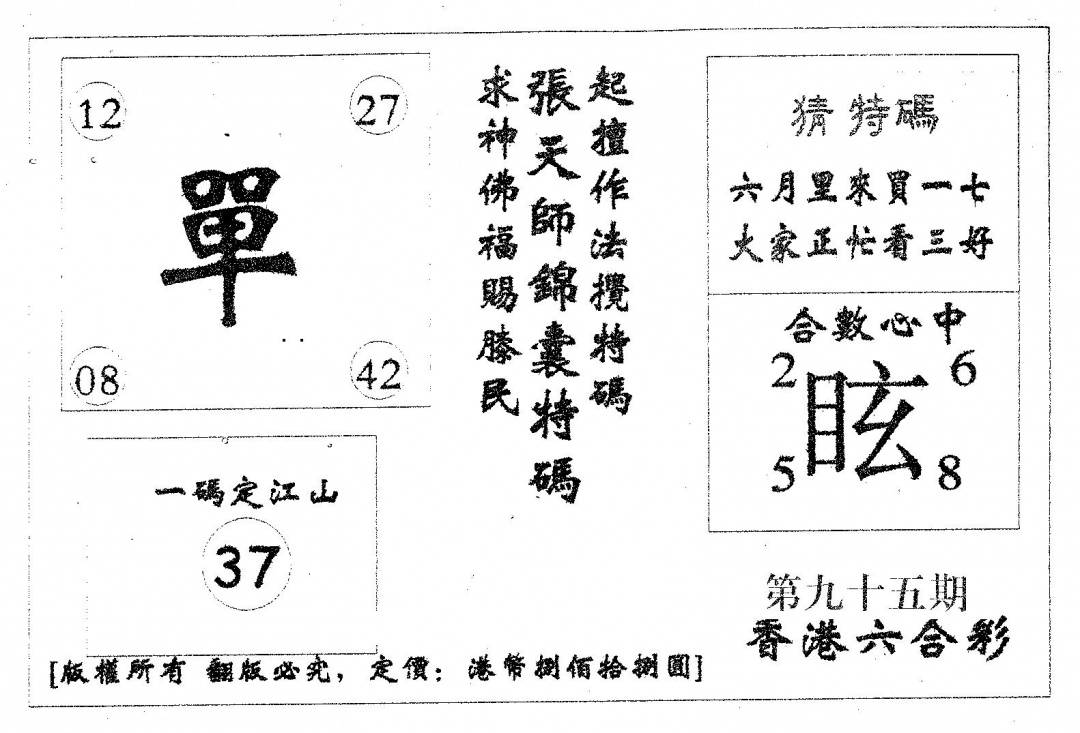 12 27
單
08 42
一碼定江山
37
起擅作法攪特碼
張天師錦囊特碼
求神佛福賜滕民
猜特碼
六月里來買一七
大家正忙看三好
合數心中
2 6
眩
5 8
第九十五期
香港六合彩
[版權所有 翻版必究，定價：港幣捌佰拾捌圓]